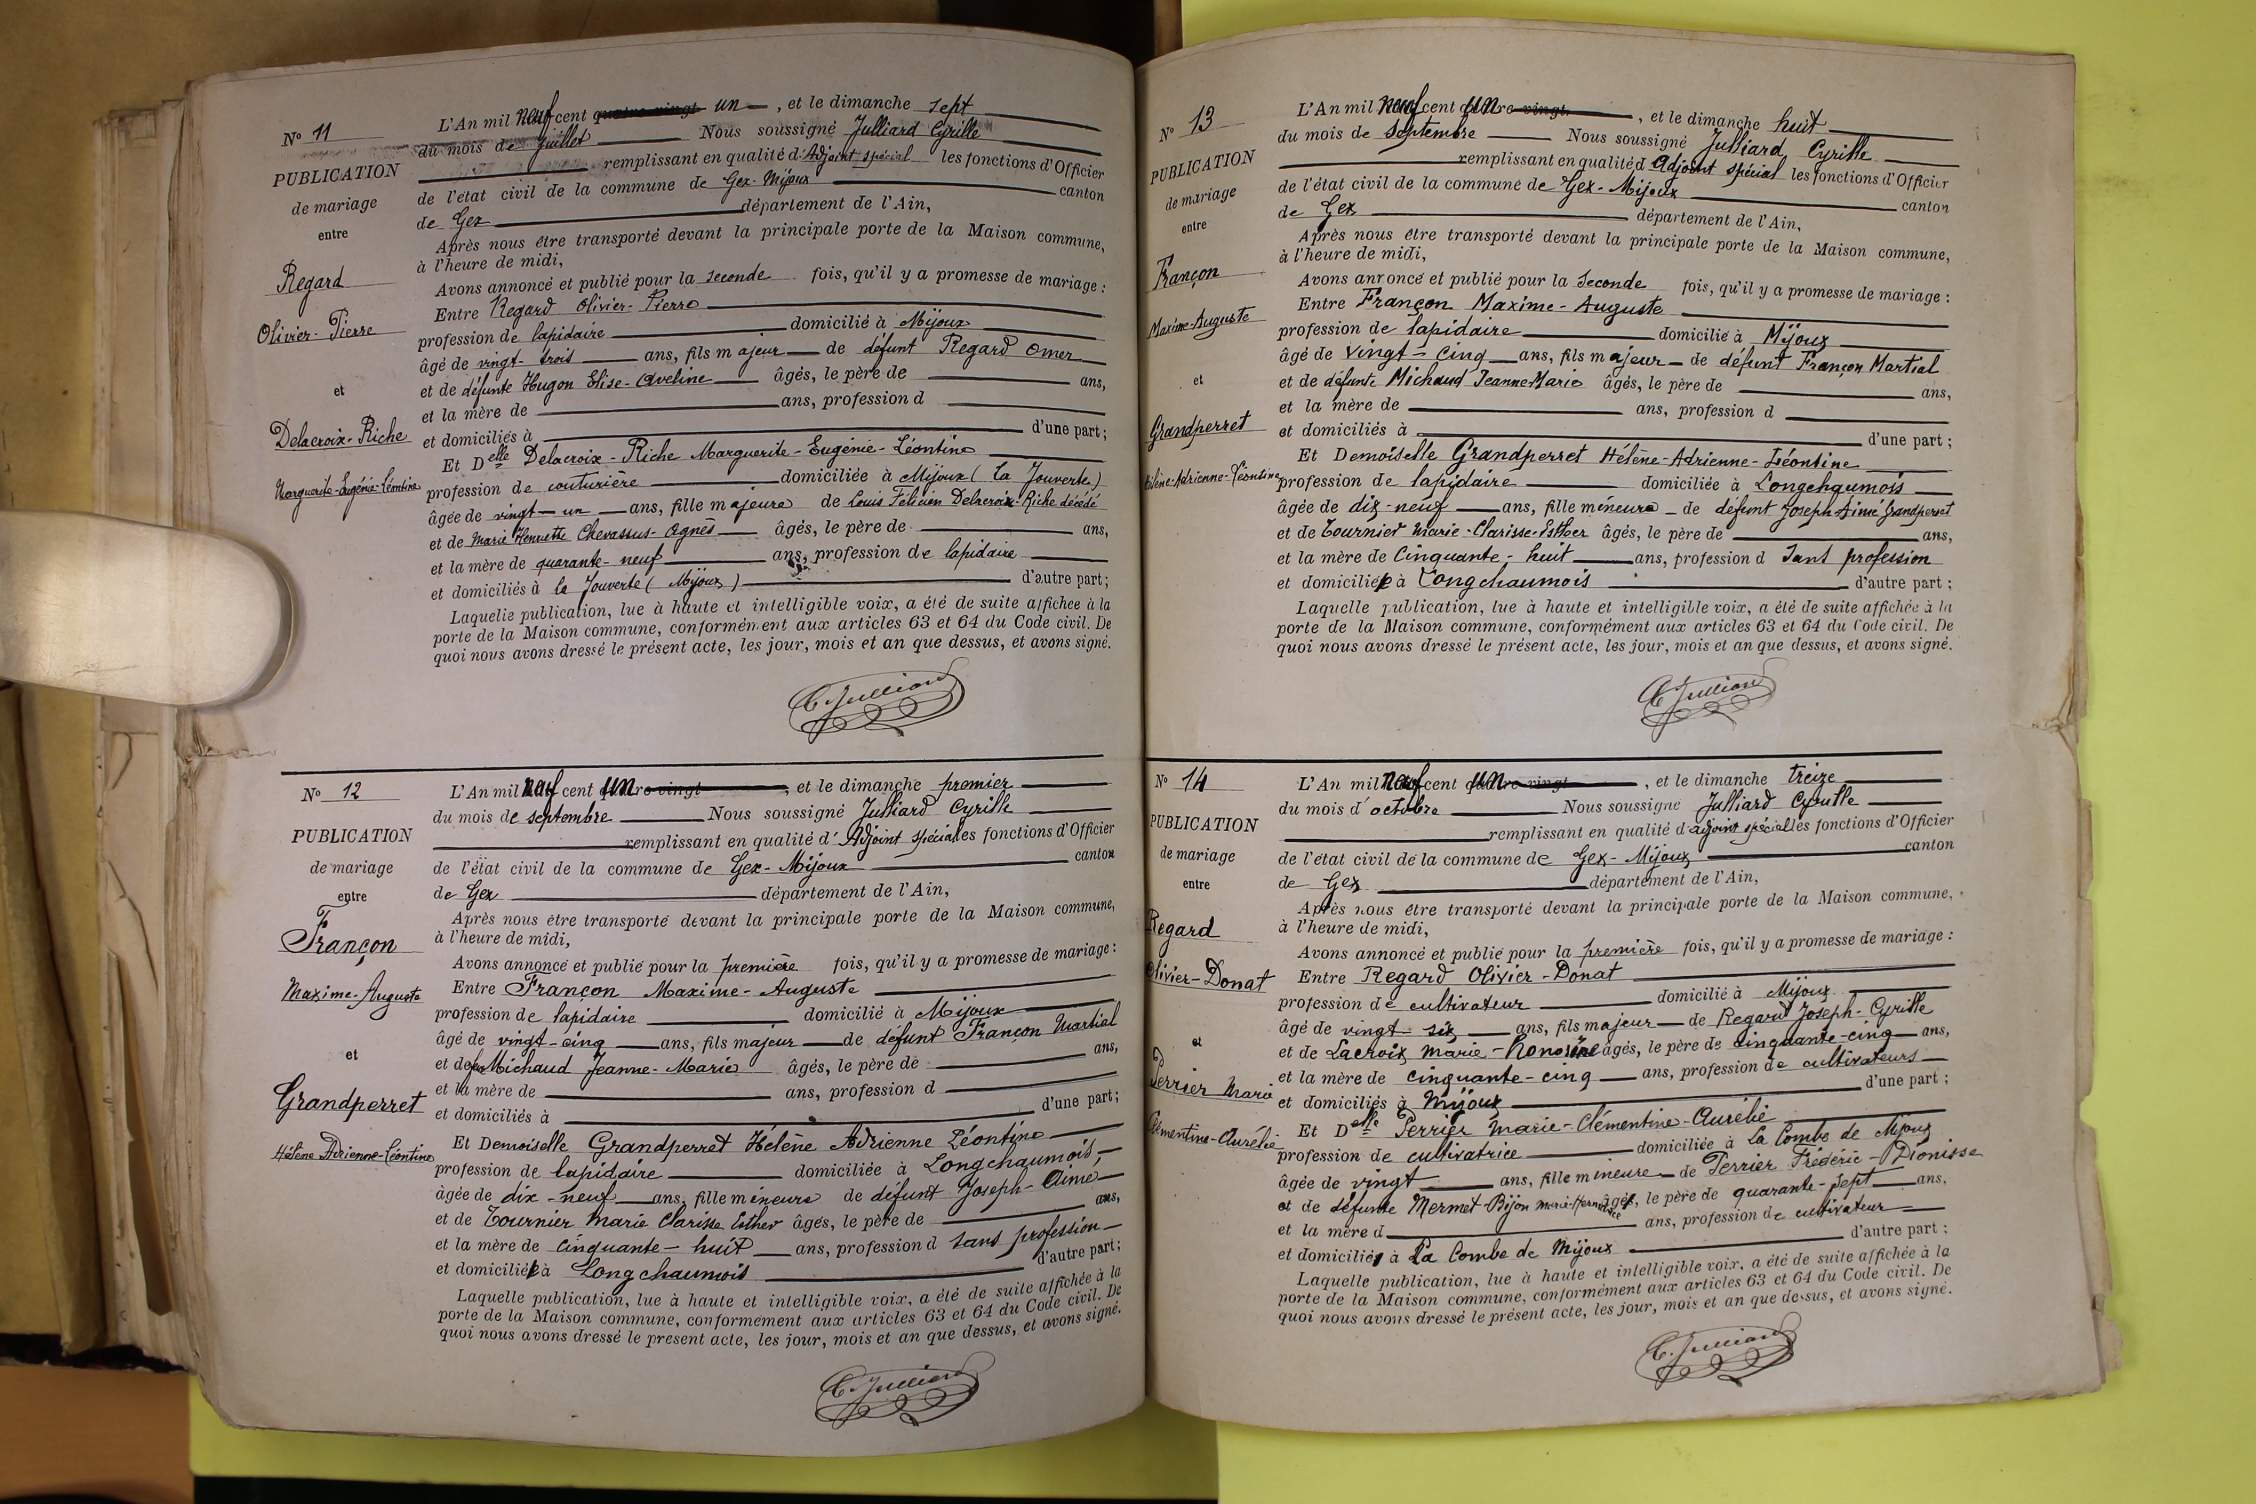 N° 11
PUBLICATION
de mariage
entre
Regard
Olivier-Pierre
et
Delacroix-Riche
Marguerite-Eugénie-Léontine
L'An mil neuf cent quatre-vingt un, et le dimanche sept
du mois de Juillet Nous soussigné Julliard Cyrille
remplissant en qualité d'Adjoint spécial les fonctions d'Officier
de l'état civil de la commune de Gex-Mijoux canton
de Gex département de l'Ain,
Après nous être transporté devant la principale porte de la Maison commune,
à l'heure de midi,
Avons annoncé et publié pour la seconde fois, qu'il y a promesse de mariage :
Entre Regard Olivier-Pierre
profession de lapidaire domicilié à Mijoux
âgé de vingt-trois ans, fils majeur de défunt Regard Omer
et de défunte Hugon Elise-Aveline âgés, le père de ans,
et la mère de ans, profession d
et domiciliés à d'une part ;
Et Delle Delacroix-Riche Marguerite-Eugénie-Léontine
profession de couturière domiciliée à Mijoux (La Jouverte)
âgée de vingt-un ans, fille majeure de Louis Félicien Delacroix-Riche décédé
et de Marie Henriette Chevassus-Agnès âgés, le père de ans,
et la mère de quarante-neuf ans, profession de lapidaire
et domiciliés à la Jouverte (Mijoux) d'autre part ;
Laquelle publication, lue à haute et intelligible voix, a été de suite affichée à la
porte de la Maison commune, conformément aux articles 63 et 64 du Code civil. De
quoi nous avons dressé le présent acte, les jour, mois et an que dessus, et avons signé.
C. Julliard
N° 12
PUBLICATION
de mariage
entre
Françon
Maxime-Auguste
et
Grandperret
Hélène Adrienne-Léontine
L'An mil neuf cent un quatre-vingt, et le dimanche premier
du mois de septembre Nous soussigné Julliard Cyrille
remplissant en qualité d'Adjoint spécial les fonctions d'Officier
de l'état civil de la commune de Gex-Mijoux canton
de Gex département de l'Ain,
Après nous être transporté devant la principale porte de la Maison commune,
à l'heure de midi,
Avons annoncé et publié pour la première fois, qu'il y a promesse de mariage :
Entre Françon Maxime-Auguste
profession de lapidaire domicilié à Mijoux
âgé de vingt-cinq ans, fils majeur de défunt Françon Martial
et de Michaud Jeanne-Marie âgés, le père de ans,
et la mère de ans, profession d
et domiciliés à d'une part ;
Et Demoiselle Grandperret Hélène Adrienne Léontine
profession de lapidaire domiciliée à Longchaumois,
âgée de dix-neuf ans, fille mineure de défunt Joseph-Aimé
et de Tournier Marie Clarisse Esther âgés, le père de ans,
et la mère de cinquante-huit ans, profession d sans profession
et domiciliée à Longchaumois d'autre part ;
Laquelle publication, lue à haute et intelligible voix, a été de suite affichée à la
porte de la Maison commune, conformément aux articles 63 et 64 du Code civil. De
quoi nous avons dressé le présent acte, les jour, mois et an que dessus, et avons signé.
C. Julliard
N° 13
PUBLICATION
de mariage
entre
Françon
Maxime-Auguste
et
Grandperret
Hélène-Adrienne-Léontine
L'An mil neuf cent un quatre-vingt, et le dimanche huit
du mois de septembre Nous soussigné Julliard Cyrille
remplissant en qualité d Adjoint spécial les fonctions d'Officier
de l'état civil de la commune de Gex-Mijoux canton
de Gex département de l'Ain,
Après nous être transporté devant la principale porte de la Maison commune,
à l'heure de midi,
Avons annoncé et publié pour la seconde fois, qu'il y a promesse de mariage :
Entre Françon Maxime-Auguste
profession de lapidaire domicilié à Mijoux
âgé de vingt-cinq ans, fils majeur de défunt Françon Martial
et de défunte Michaud Jeanne Marie âgés, le père de ans,
et la mère de ans, profession d
et domiciliés à d'une part ;
Et Demoiselle Grandperret Hélène-Adrienne-Léontine
profession de lapidaire domiciliée à Longchaumois
âgée de dix-neuf ans, fille mineure de défunt Joseph-Aimé Grandperret
et de Tournier Marie-Clarisse-Esther âgés, le père de ans,
et la mère de cinquante-huit ans, profession d sans profession
et domiciliée à Longchaumois d'autre part ;
Laquelle publication, lue à haute et intelligible voix, a été de suite affichée à la
porte de la Maison commune, conformément aux articles 63 et 64 du Code civil. De
quoi nous avons dressé le présent acte, les jour, mois et an que dessus, et avons signé.
C. Julliard
N° 14
PUBLICATION
de mariage
entre
Regard
Olivier-Donat
et
Perrier Marie
Clémentine-Aurélie
L'An mil neuf cent un quatre-vingt, et le dimanche treize
du mois d'octobre Nous soussigné Julliard Cyrille
remplissant en qualité d'adjoint spécial les fonctions d'Officier
de l'état civil de la commune de Gex-Mijoux canton
de Gex département de l'Ain,
Après nous être transporté devant la principale porte de la Maison commune,
à l'heure de midi,
Avons annoncé et publié pour la première fois, qu'il y a promesse de mariage :
Entre Regard Olivier-Donat
profession de cultivateur domicilié à Mijoux
âgé de vingt-six ans, fils majeur de Regard Joseph-Cyrille
et de Lacroix Marie-Honorine âgés, le père de cinquante-cinq ans,
et la mère de cinquante-cinq ans, profession de cultivateurs
et domiciliés à Mijoux d'une part ;
Et Delle Perrier Marie-Clémentine-Aurélie
profession de cultivatrice domiciliée à La Combe de Mijoux
âgée de vingt ans, fille mineure de Perrier Frédéric-Dionisse
et de défunte Mermet-Bijon âgés, le père de quarante-sept ans,
et la mère d ans, profession de cultivateur
et domiciliés à La Combe de Mijoux d'autre part ;
Laquelle publication, lue à haute et intelligible voix, a été de suite affichée à la
porte de la Maison commune, conformément aux articles 63 et 64 du Code civil. De
quoi nous avons dressé le présent acte, les jour, mois et an que dessus, et avons signé.
C. Julliard